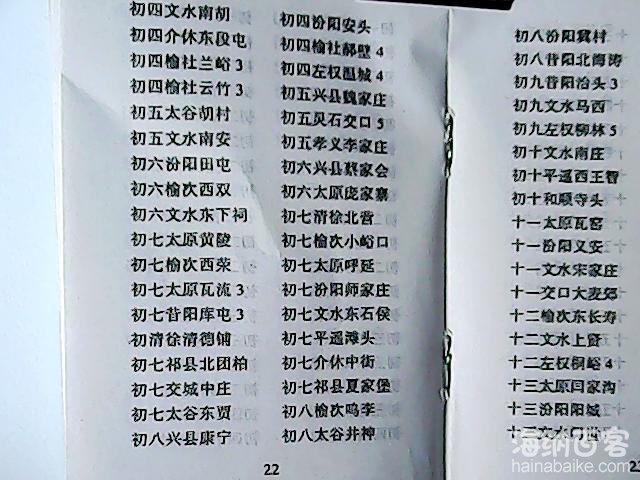 初四文水南胡
初四介休东段屯
初四榆社兰峪 3
初四榆社云竹 3
初五太谷胡村
初五文水南安
初六汾阳田屯
初六榆次西双
初六文水东下祠
初七太原黄陵
初七榆次西荣
初七太原瓦流 3
初七昔阳库屯 3
初清徐清德铺
初七祁县北团柏
初七交城中庄
初七太谷东贾
初八兴县康宁
初四汾阳安头
初四榆社郝壁 4
初四左权温城 4
初五兴县魏家庄
初五灵石交口 5
初五孝义李家庄
初六兴县蔡家会
初六太原庞家寨
初七清徐北营
初七榆次小峪口
初七太原呼延
初七汾阳师家庄
初七文水东石侯
初七平遥滩头
初七介休中街
初七祁县夏家堡
初八榆次鸣李
初八太谷井神
22
初八汾阳冀村
初八昔阳北
初九昔阳冶头 3
初九文水马西
初九左权柳林 5
初十文水南庄
初十平遥西王智
初十和顺寺头
十一太原瓦窑
十一汾阳义安
十一文水宋家庄
十一交口大麦郊
十二榆次东长寿
十二文水上贤
十二左权桐峪 4
十三太原闫家沟
十三汾阳阳城
十三文水
海纳百客
hainabaike.com